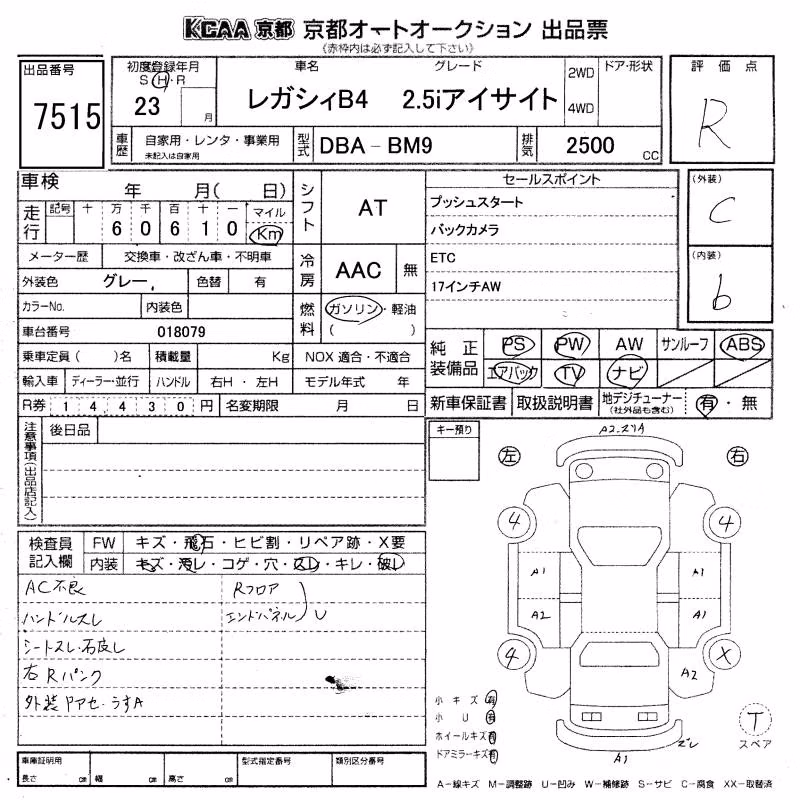 KCAA 京都 京都オートオークション 出品票
《赤枠内は必ず記入して下さい》
出品番号
7515
初度登録年月
S・H・R
23
月
車名
グレード
レガシィB4 2.5iアイサイト
2WD
4WD
ドア・形状
評価点
R
車歴
自家用・レンタ・事業用
未記入は自家用
型式
DBA－BM9
排気
2500
CC
車検
年 月( 日)
走行
記号 十 万 千 百 十 一
6 0 6 1 0
マイル
Km
シフト
AT
セールスポイント
プッシュスタート
バックカメラ
ETC
17インチAW
(外装)
C
(内装)
b
メーター歴
交換車・改ざん車・不明車
外装色
グレー
色替
有
冷房
AAC
無
カラーNo.
内装色
燃料
ガソリン・軽油
( )
車台番号
018079
乗車定員( )名
積載量
Kg
NOX 適合・不適合
輸入車
ディーラー・並行
ハンドル
右H・左H
モデル年式 年
純正装備品
PS
PW
AW
サンルーフ
ABS
エアバック
TV
ナビ
R券
1 4 4 3 0 円
名変期限
月 日
新車保証書
取扱説明書
地デジチューナー
(社外品も含む)
有・無
注意事項(出品店記入)
後日品
キー預り
左
右
A2.ズリA
4
4
A1
A1
A2
A1
4
X
A2
A1
ズレ
検査員記入欄
FW
キズ・飛石・ヒビ割・リペア跡・X要
内装
キズ・汚レ・コゲ・穴・スレ・キレ・破レ
AC不良
ハンドルスレ
シートスレ・右皮し
右Rパンク
外装ドアセ・うすA
Rフロア
エンドパネル
U
小キズ 有
小U 有
ホイールキズ 有
ドアミラーキズ 有
T
スペア
車庫証明用
長さ cm
幅 cm
高さ cm
型式指定番号
類別区分番号
A－線キズ M－調整跡 U－凹み W－補修跡 S－サビ C－腐食 XX－取替済